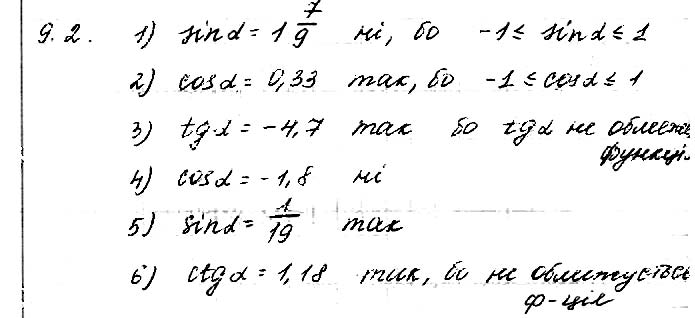 9.2. 1) sin α = 1 7/9 ні, бо -1 ≤ sin α ≤ 1
2) cos α = 0,33 так, бо -1 ≤ cos α ≤ 1
3) tg α = -4,7 так бо tg α не обмеже
функція
4) cos α = -1,8 ні
5) sin α = 1/19 так
6) ctg α = 1,18 так, бо не обмежується
ф-ція